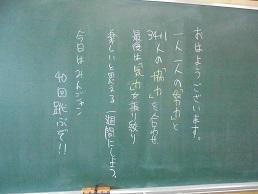 おはようございます。
一人一人の「努力」と
34人の「協力」を合わせ
最後は「気力」を振り絞り
楽しいと思える一週間にしよう。
今日はみんジャン
40回跳ぶぞ!!